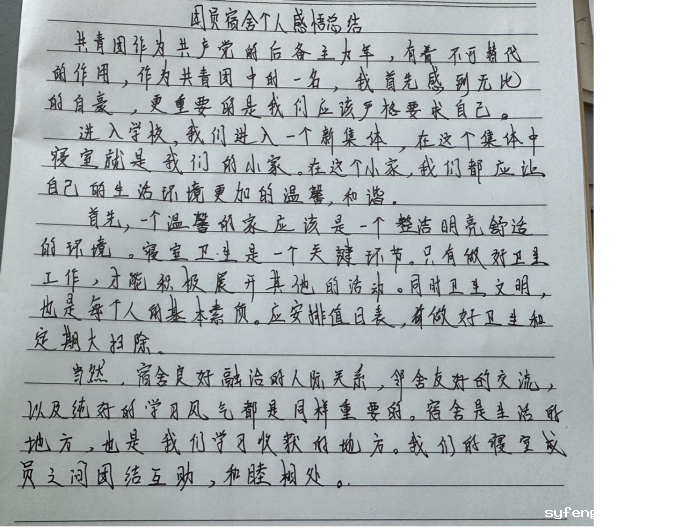 团员宿舍个人感悟总结
共青团作为共产党的后备主力军，有着不可替代
的作用，作为共青团中的一名，我首先感到无比
的自豪，更重要的是我们应该严格要求自己。
进入学校，我们进入一个新集体，在这个集体中
寝室就是我们的小家。在这个小家，我们都应让
自己的生活环境更加的温馨，和谐。
首先，一个温馨的家应该是一个整洁明亮舒适
的环境。寝室卫生是一个关键环节。只有做好卫生
工作，才能积极展开其他的活动。同时卫生文明，
也是每个人的基本素质。应安排值日表，做好卫生和
定期大扫除。
当然，宿舍良好融洽的人际关系，邻舍友好的交流，
以及统好的学习风气都是同样重要的。宿舍是生活的
地方，也是我们学习收获的地方。我们的寝室成
员之间团结互助，和睦相处。
syfeng